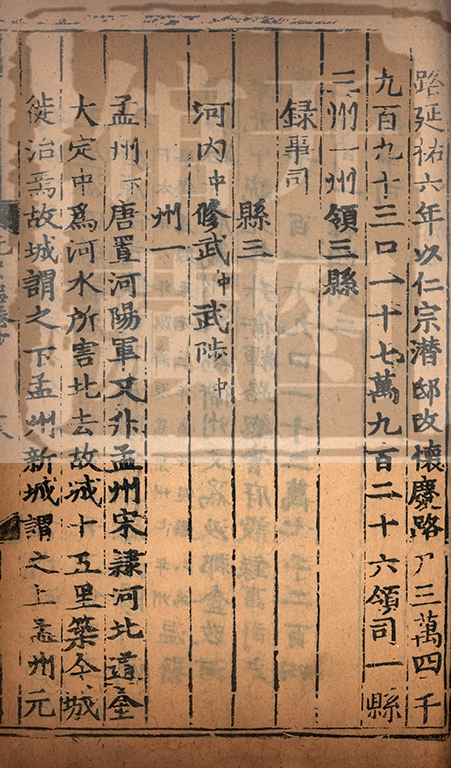 路延祐六年以仁宗潜邸改懷慶路戸三萬四千
九百九十三口一十七萬九百二十六領司一縣
三州一州領三縣
録事司
縣三
河内中修武中武陟中
州一
孟州下唐置河陽軍又升孟州宋隷河北道金
大定中為河水所害北去故城十五里築今城
徙治焉故城謂之下孟州新城謂之上孟州元